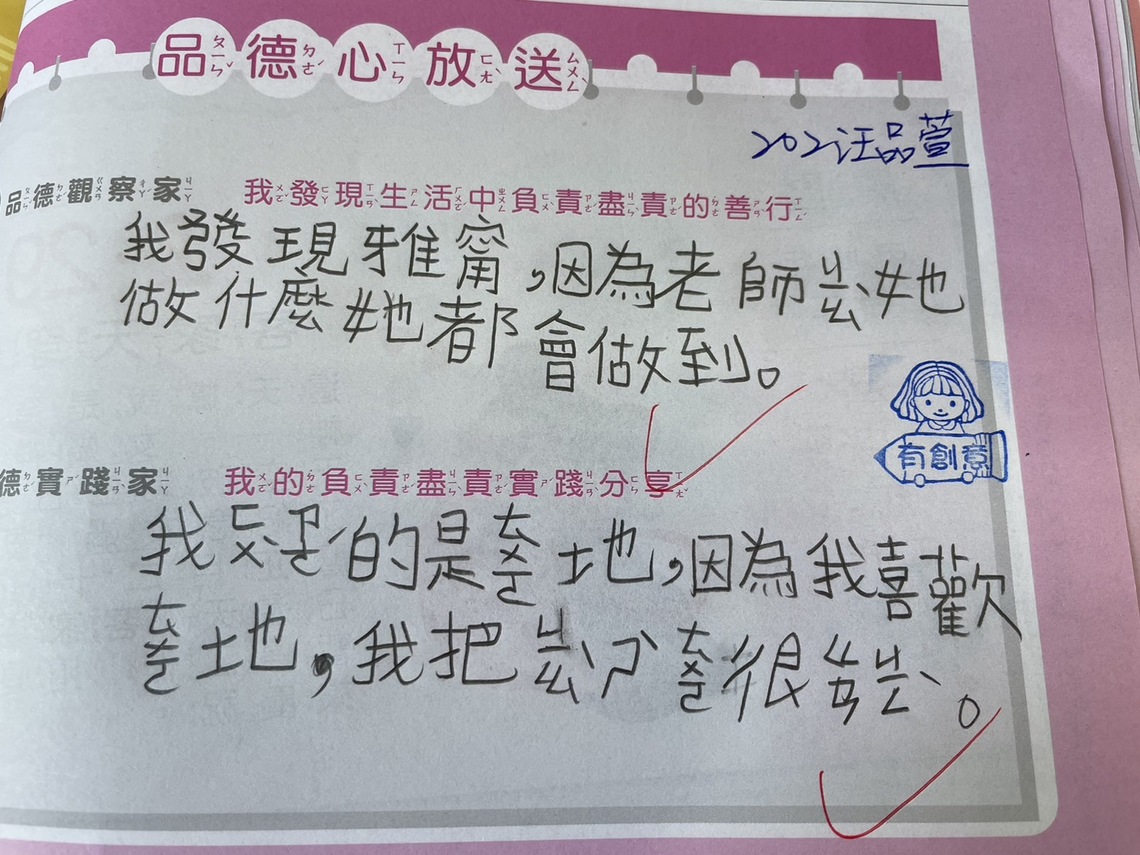 品德心放送
202汪品萱
品德觀察家 我發現生活中負責盡責的善行
我發現雅甯,因為老師ㄐㄧㄠ她
做什麼她都會做到。
有創意
德實踐家 我的負責盡責實踐分享
我ㄈㄨˋㄗㄜˊ的是ㄊㄨㄛ地,因為我喜歡
ㄊㄨㄛ地,我把ㄐㄧㄠˋㄕˋㄊㄨㄛ很ㄍㄢㄐㄧㄥˋ。